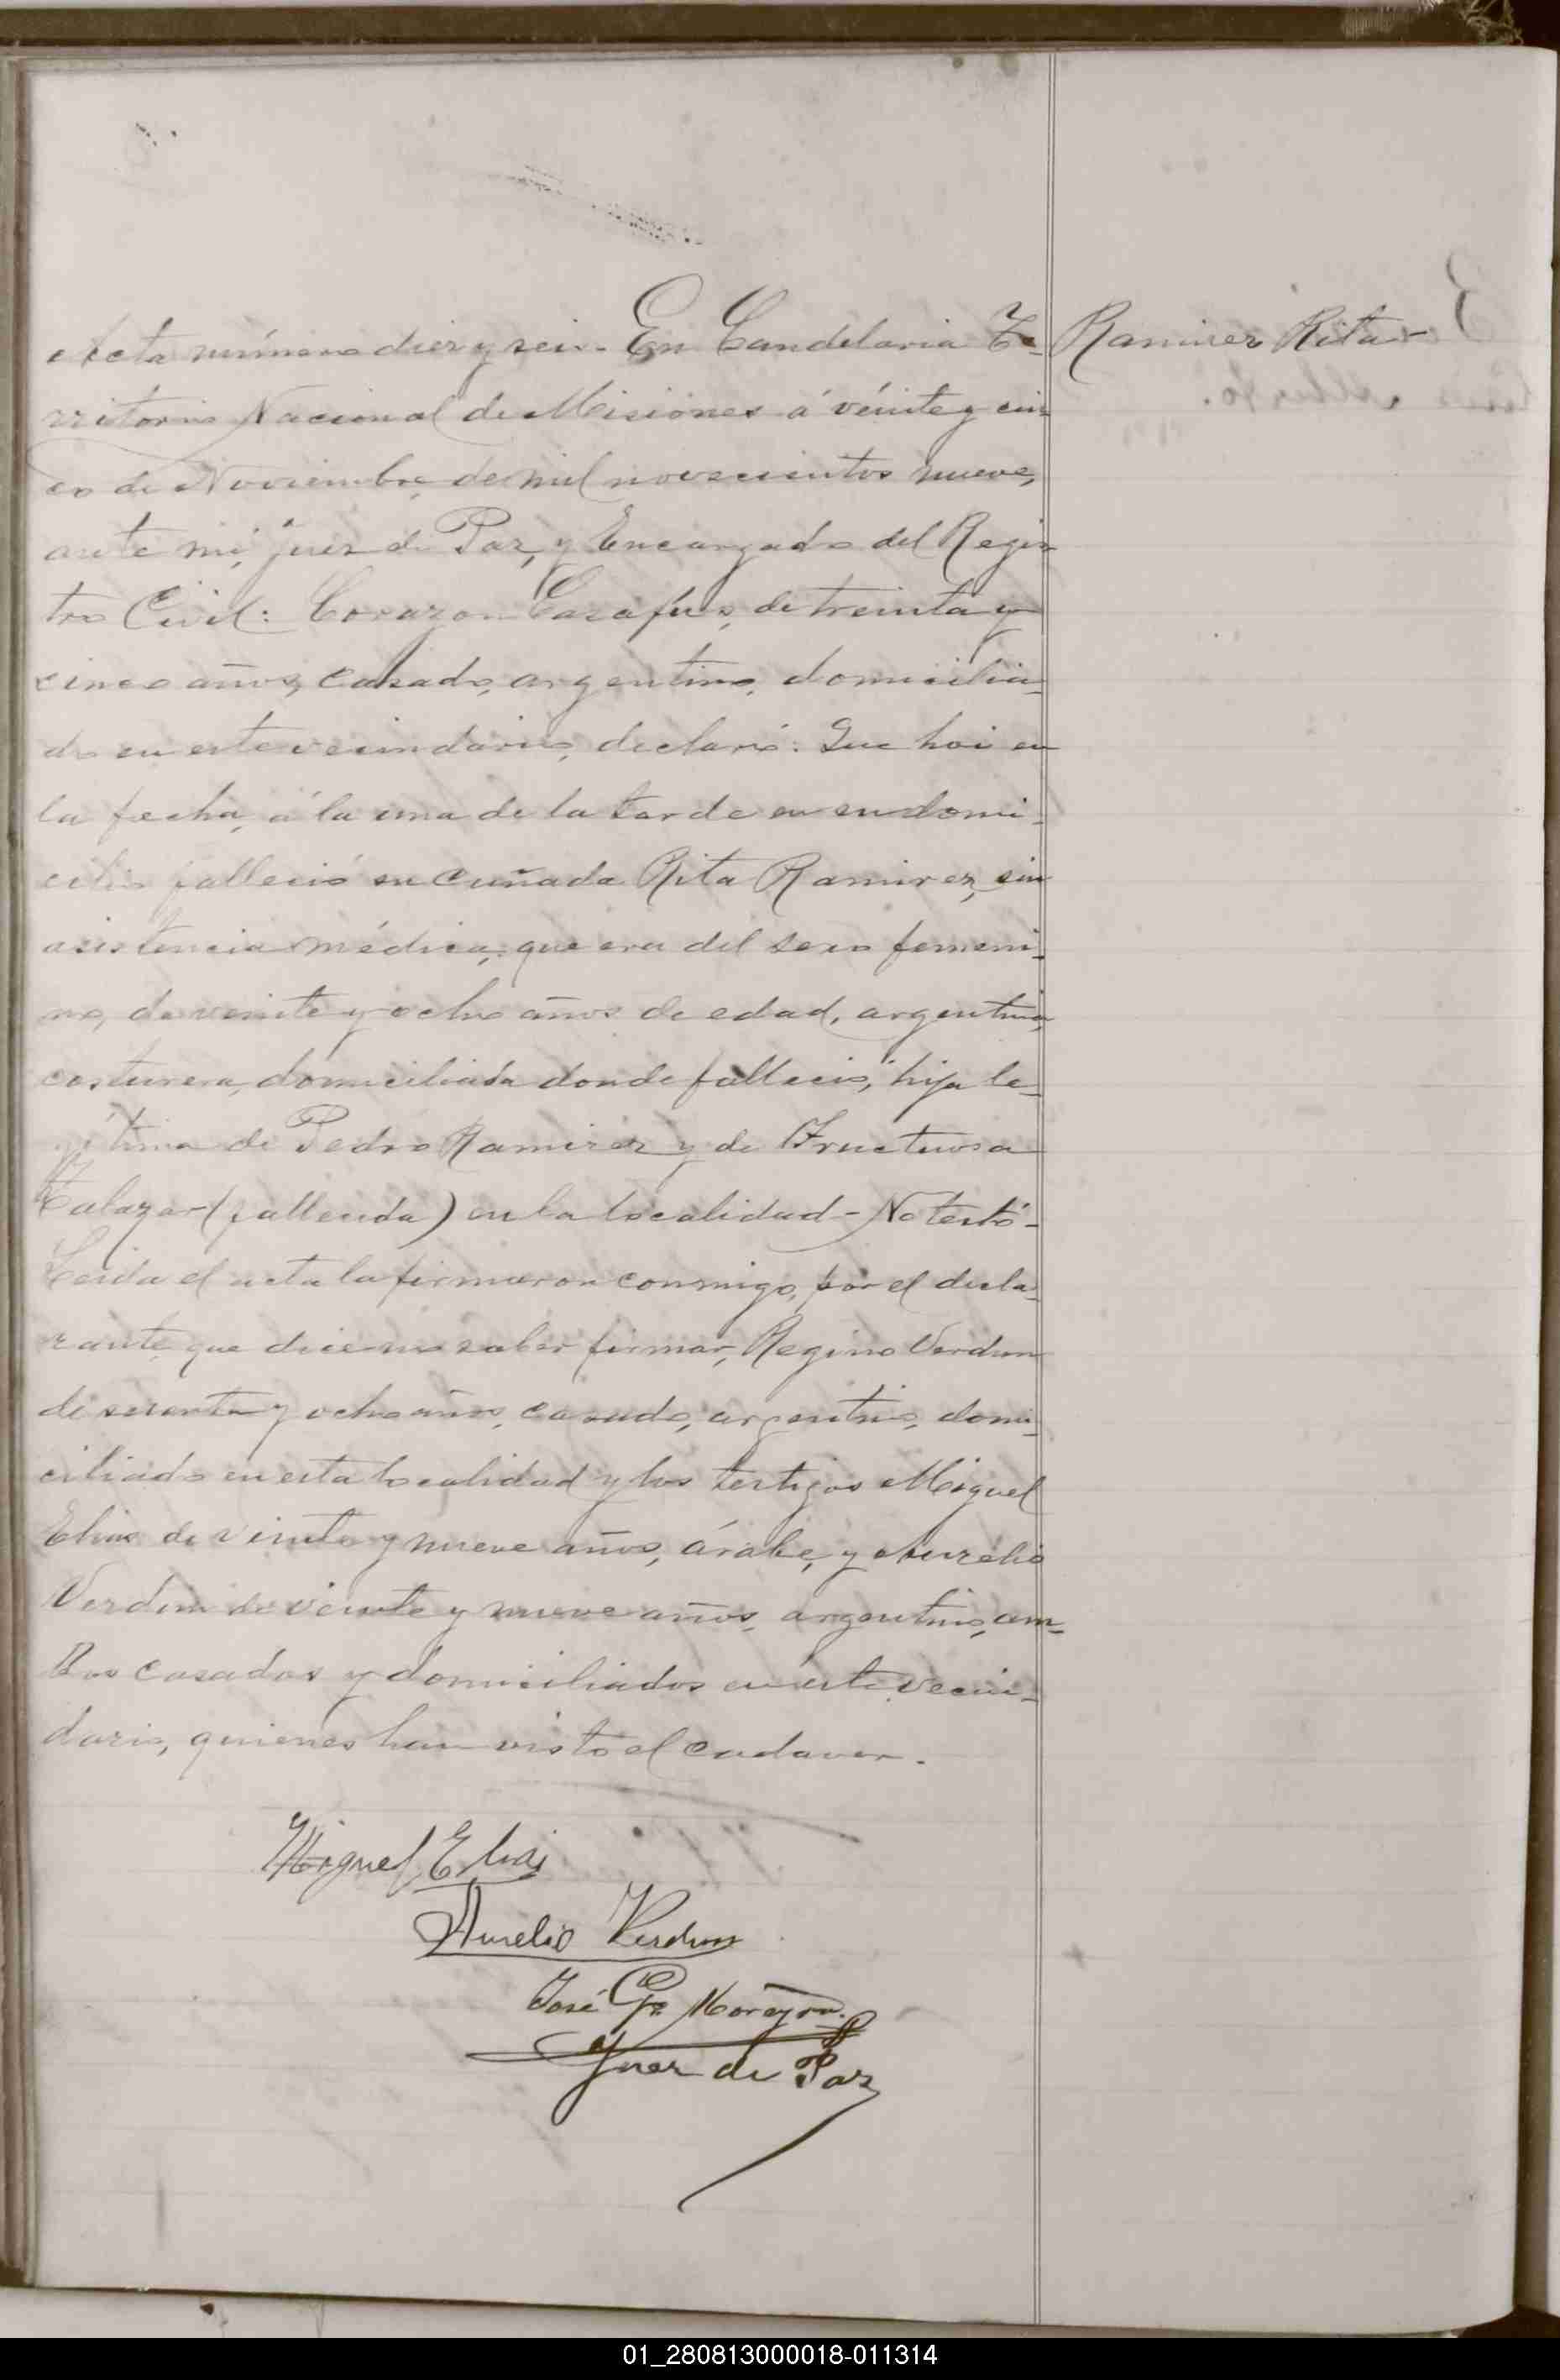 Acta número diez y seis - En Candelaria Te-
rritorio Nacional de Misiónes á véinte y cin
co de Noviembre de mil novecientos nueve,
ante mi, juez de Paz, y Encargado del Regis
tro Civil: Corazon de treinta y
cinco años, casado, argentino, domicilia-
do en este vecindario, declaró: Que hoi en
la fecha, á la una de la tarde en su domi-
cilio falleció su cuñada Rita Ramirez, sin
asistencia médica, que era del sexo femeni-
no, de veinte y ocho años de edad, argentina,
costurera, domiciliada donde falleció, hija le-
gítima de Pedro Ramirez y de Fructuosa
(fallecida) en la localidad - No testó -
Leida el acta la firmaron conmigo, por el decla-
rante que dice no saber firmar, Regino Verdun
de y ocho años, casado, argentino, domi-
ciliado en esta localidad y los testigos Miguel
Elias de veinte y nueve años, árabe, y Aurelio
Verdun de veinte y nueve años, argentino, am-
bos casados y domiciliados en este vecin-
dario, quienes han visto el cadaver.
Ramirez Rita -
Miguel Elias
Aurelio Verdun
José G. Moreyra
Juez de Paz
01_280813000018-011314